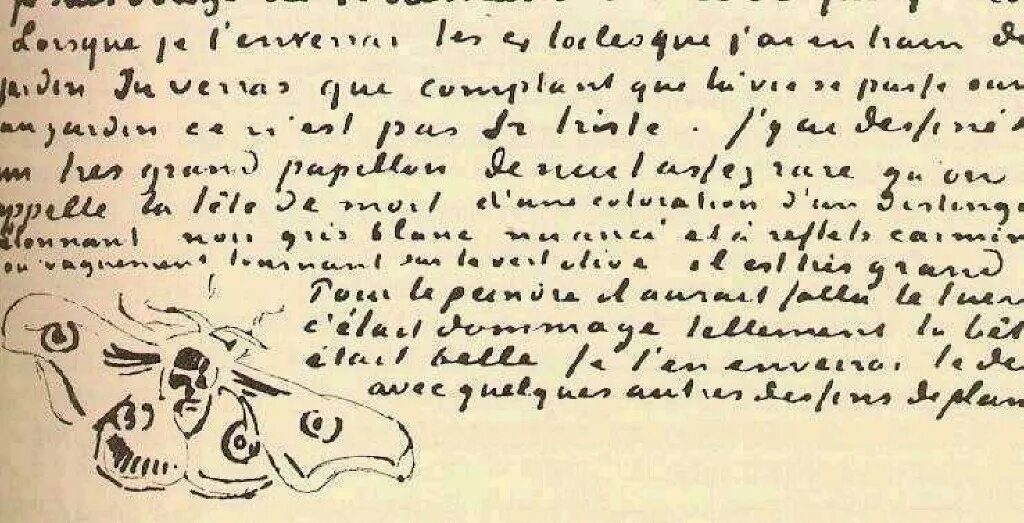 Lorsque je t'enverrai les 4 toiles que j'ai en train d
jardin Tu verras que comptant que la vie se passe sur
au jardin ce n'est pas si triste. J'y ai dessiné
un tres grand papillon de nuit assez rare qu'on
appelle la tête de mort d'une coloration d'un distingu
étonnant noir gris blanc nuancé et à reflets carmin
ou vaguement tournant sur le vert olive il est très grand
Pour le peindre il aurait fallu le tuer
c'était dommage tellement la bêt
était belle Je t'en enverrai le de
avec quelques autres dessins de plan